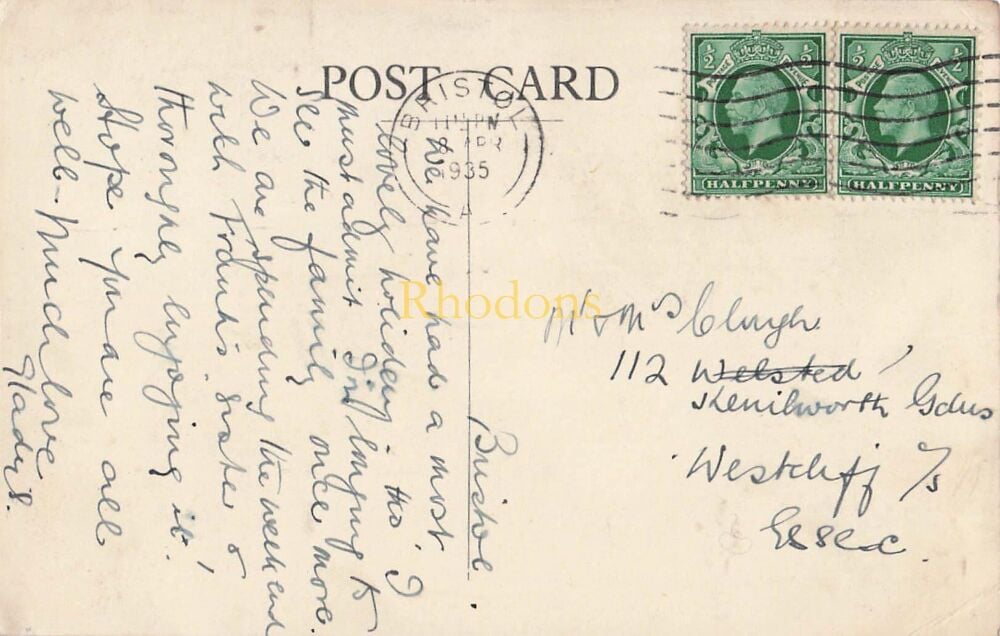 POST CARD
BRISTOL
APR
1935
A
1/2 1/2
HALFPENNY
1/2 1/2
HALFPENNY
Rhodons
Bristol
We have had a most
lovely holiday, tho' I
must admit I'm longing to
see the family once more.
We are spending the week end
with Frank's sister &
thoroughly enjoying it!
Hope you are all
well - Much love
Gladys.
Mr & Mrs Clough
112 Welsted
Kenilworth Gdns
Westcliff o/s
Essex.